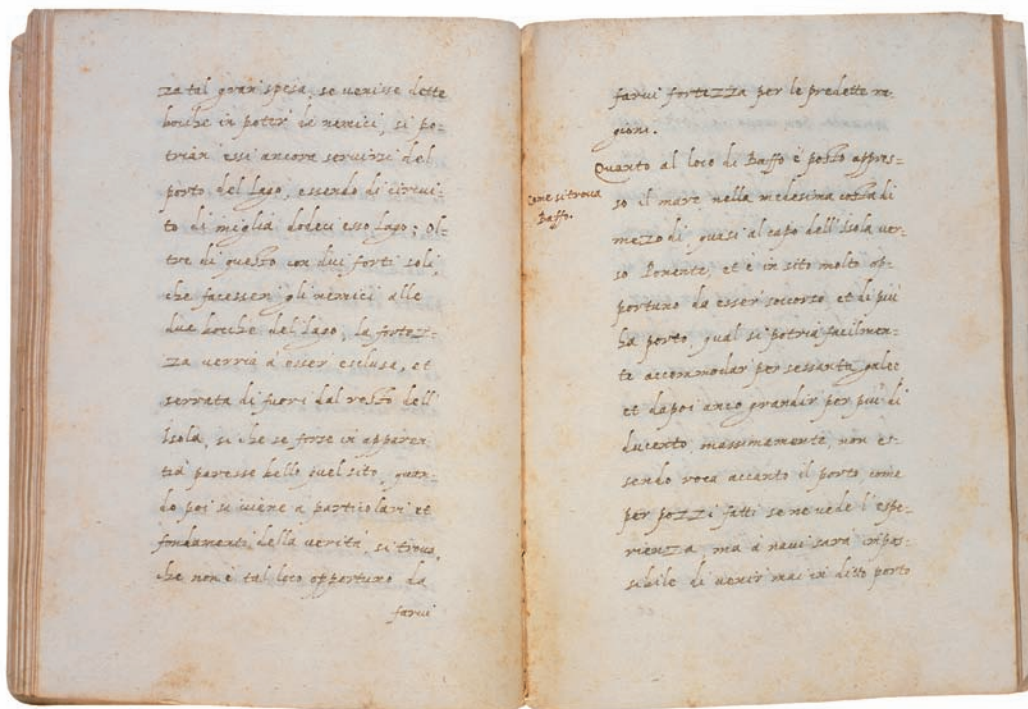 za tal gran spesa, se venisse dette
bocche in poter de nemici, si po=
trian essi ancora servirsi del
porto del Lago, essendo di circui=
to di miglia dodeci esso Lago; Ol=
tre di questo con dui forti soli,
che facesser gli nemici alle
due bocche del Lago, la fortez=
za verria à esser esclusa, et
serrata di fuori dal resto dell'
Isola, si che se forse in apparen
tia paresse bello quel sito, quan=
do poi si viene a particolari et
fondamenti della verità, si trova,
che non è tal loco opportuno da
farvi
farvi fortezza per le predette ra=
gioni.
Come si trova
Baffo.
Quanto al loco di Baffo è posto appres=
so il mare nella medesima costa di
mezo di, quasi al capo dell'Isola ver=
so Ponente, et è in sito molto op=
portuno da esser soccorso et di più
ha porto, qual si potria facilmen=
te accommodar per sessanta galee
et dapoi anco grandir per più di
ducento, massimamente, non es=
sendo roca accanto il porto, come
per pozzi fatti se ne vede l'espe=
rienza, ma à navi sarà impos=
sibile di venir mai in ditto porto